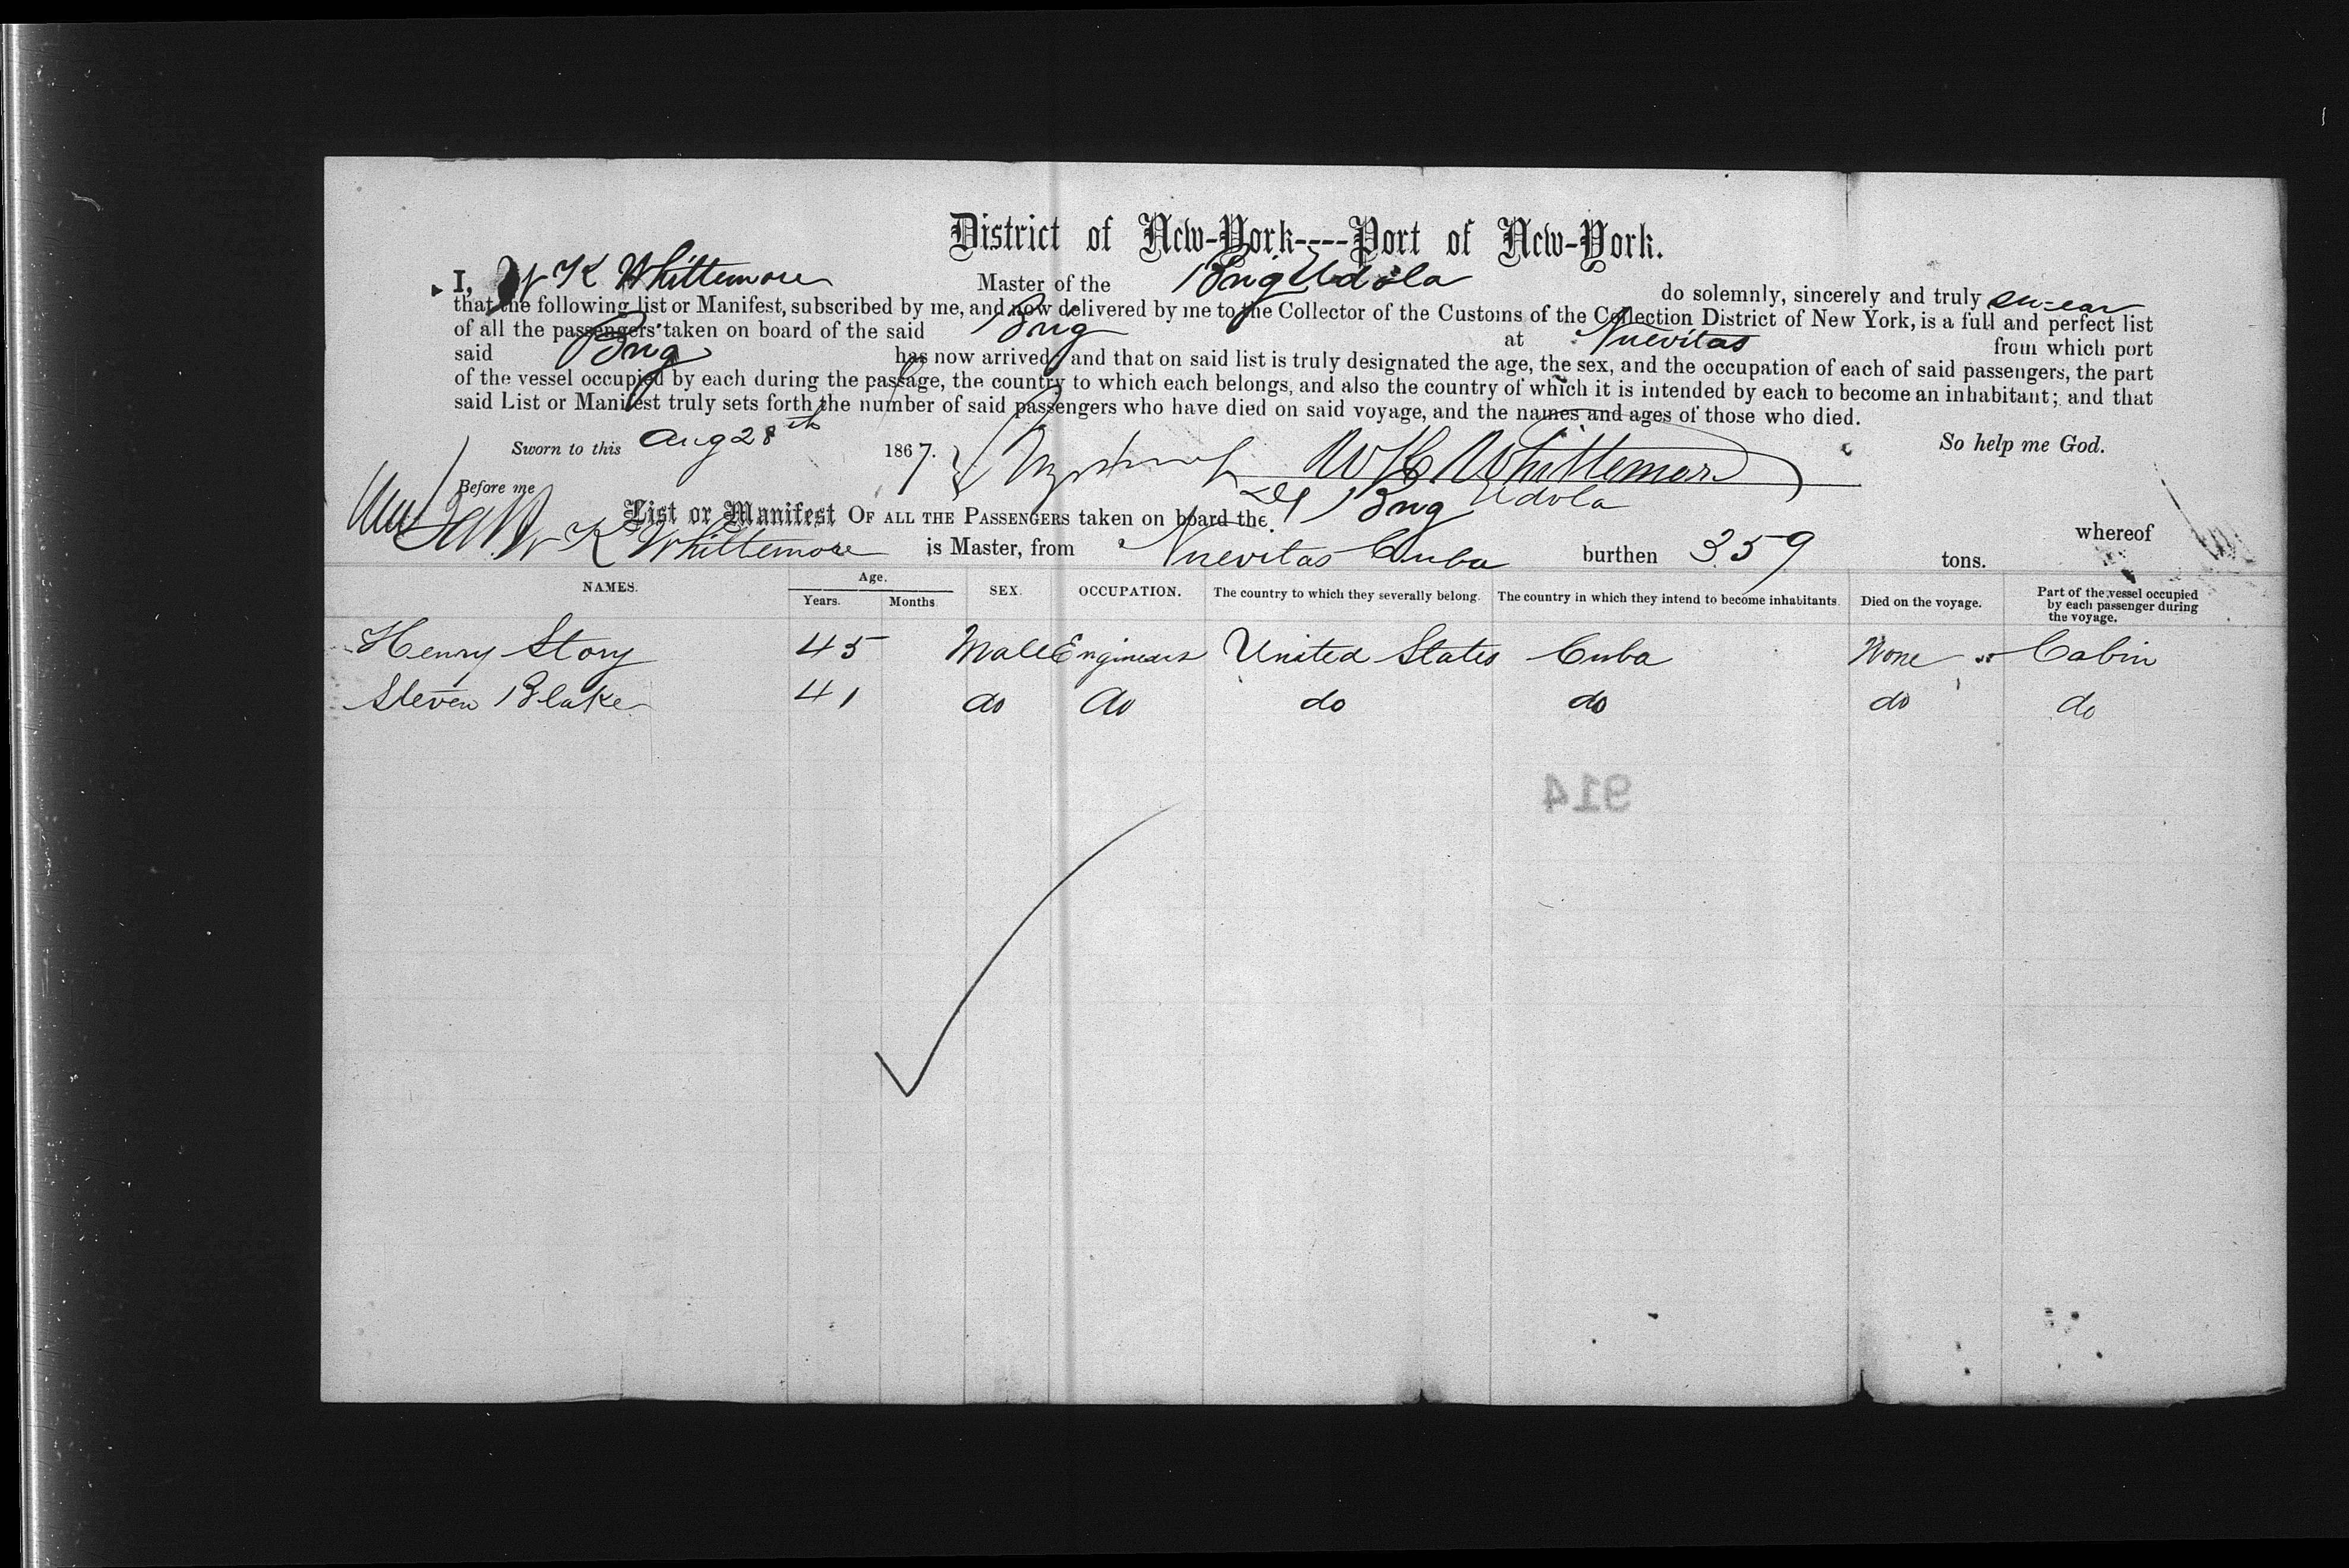 District of New-York----Port of New-York.
I, W K Whittemore Master of the Brig Udola do solemnly, sincerely and truly swear
that the following list or Manifest, subscribed by me, and now delivered by me to the Collector of the Customs of the Collection District of New York, is a full and perfect list
of all the passengers taken on board of the said Brig at Nuevitas from which port
said Brig has now arrived; and that on said list is truly designated the age, the sex, and the occupation of each of said passengers, the part
of the vessel occupied by each during the passage, the country to which each belongs, and also the country of which it is intended by each to become an inhabitant; and that
said List or Manifest truly sets forth the number of said passengers who have died on said voyage, and the names and ages of those who died.
Sworn to this Aug 28th 1867. So help me God.
W K Whittemore
Before me
List or Manifest OF ALL THE PASSENGERS taken on board the Brig Udola whereof
W K Whittemore is Master, from Nuevitas Cuba burthen 359 tons.
NAMES. Age. Years. Months SEX. OCCUPATION. The country to which they severally belong. The country in which they intend to become inhabitants. Died on the voyage. Part of the vessel occupied by each passenger during the voyage.
Henry Story 45 Male Engineers United States Cuba None Cabin
Steven Blake 41 do do do do do do
914